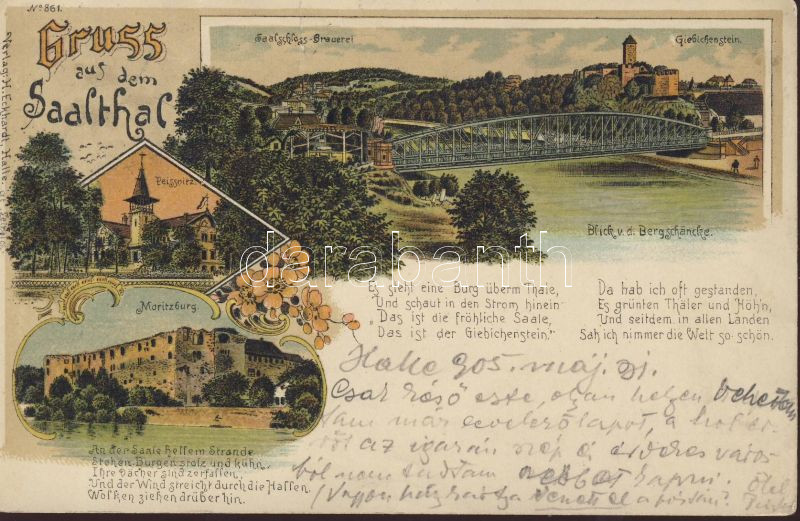 No 861.
Gruss
aus dem
Saalthal
Verlag: H. Eckhardt, Halle
Saalschloss-Brauerei
Giebichenstein.
Blick v. d. Bergschäncke.
Peissnitz.
Moritzburg.
Es steht eine Burg überm Thale,
Und schaut in den Strom hinein
Das ist die fröhliche Saale,
Das ist der Giebichenstein."
Da hab ich oft gestanden,
Es grünten Thäler und Höh'n,
Und seitdem in allen Landen
Sah ich nimmer die Welt so schön.
An der Saale hellem Strande
Stehen Burgen stolz und kühn.
Ihre Dächer sind zerfallen,
Und der Wind streicht durch die Hallen
Wolken ziehen drüber hin.
Halle 905. máj. 31.
Csak késő este, olyan helyen vehettem
már levelezőlapot, a hol
az igazán szép és érdekes város
ból nem tudtam kapni.
darabanth